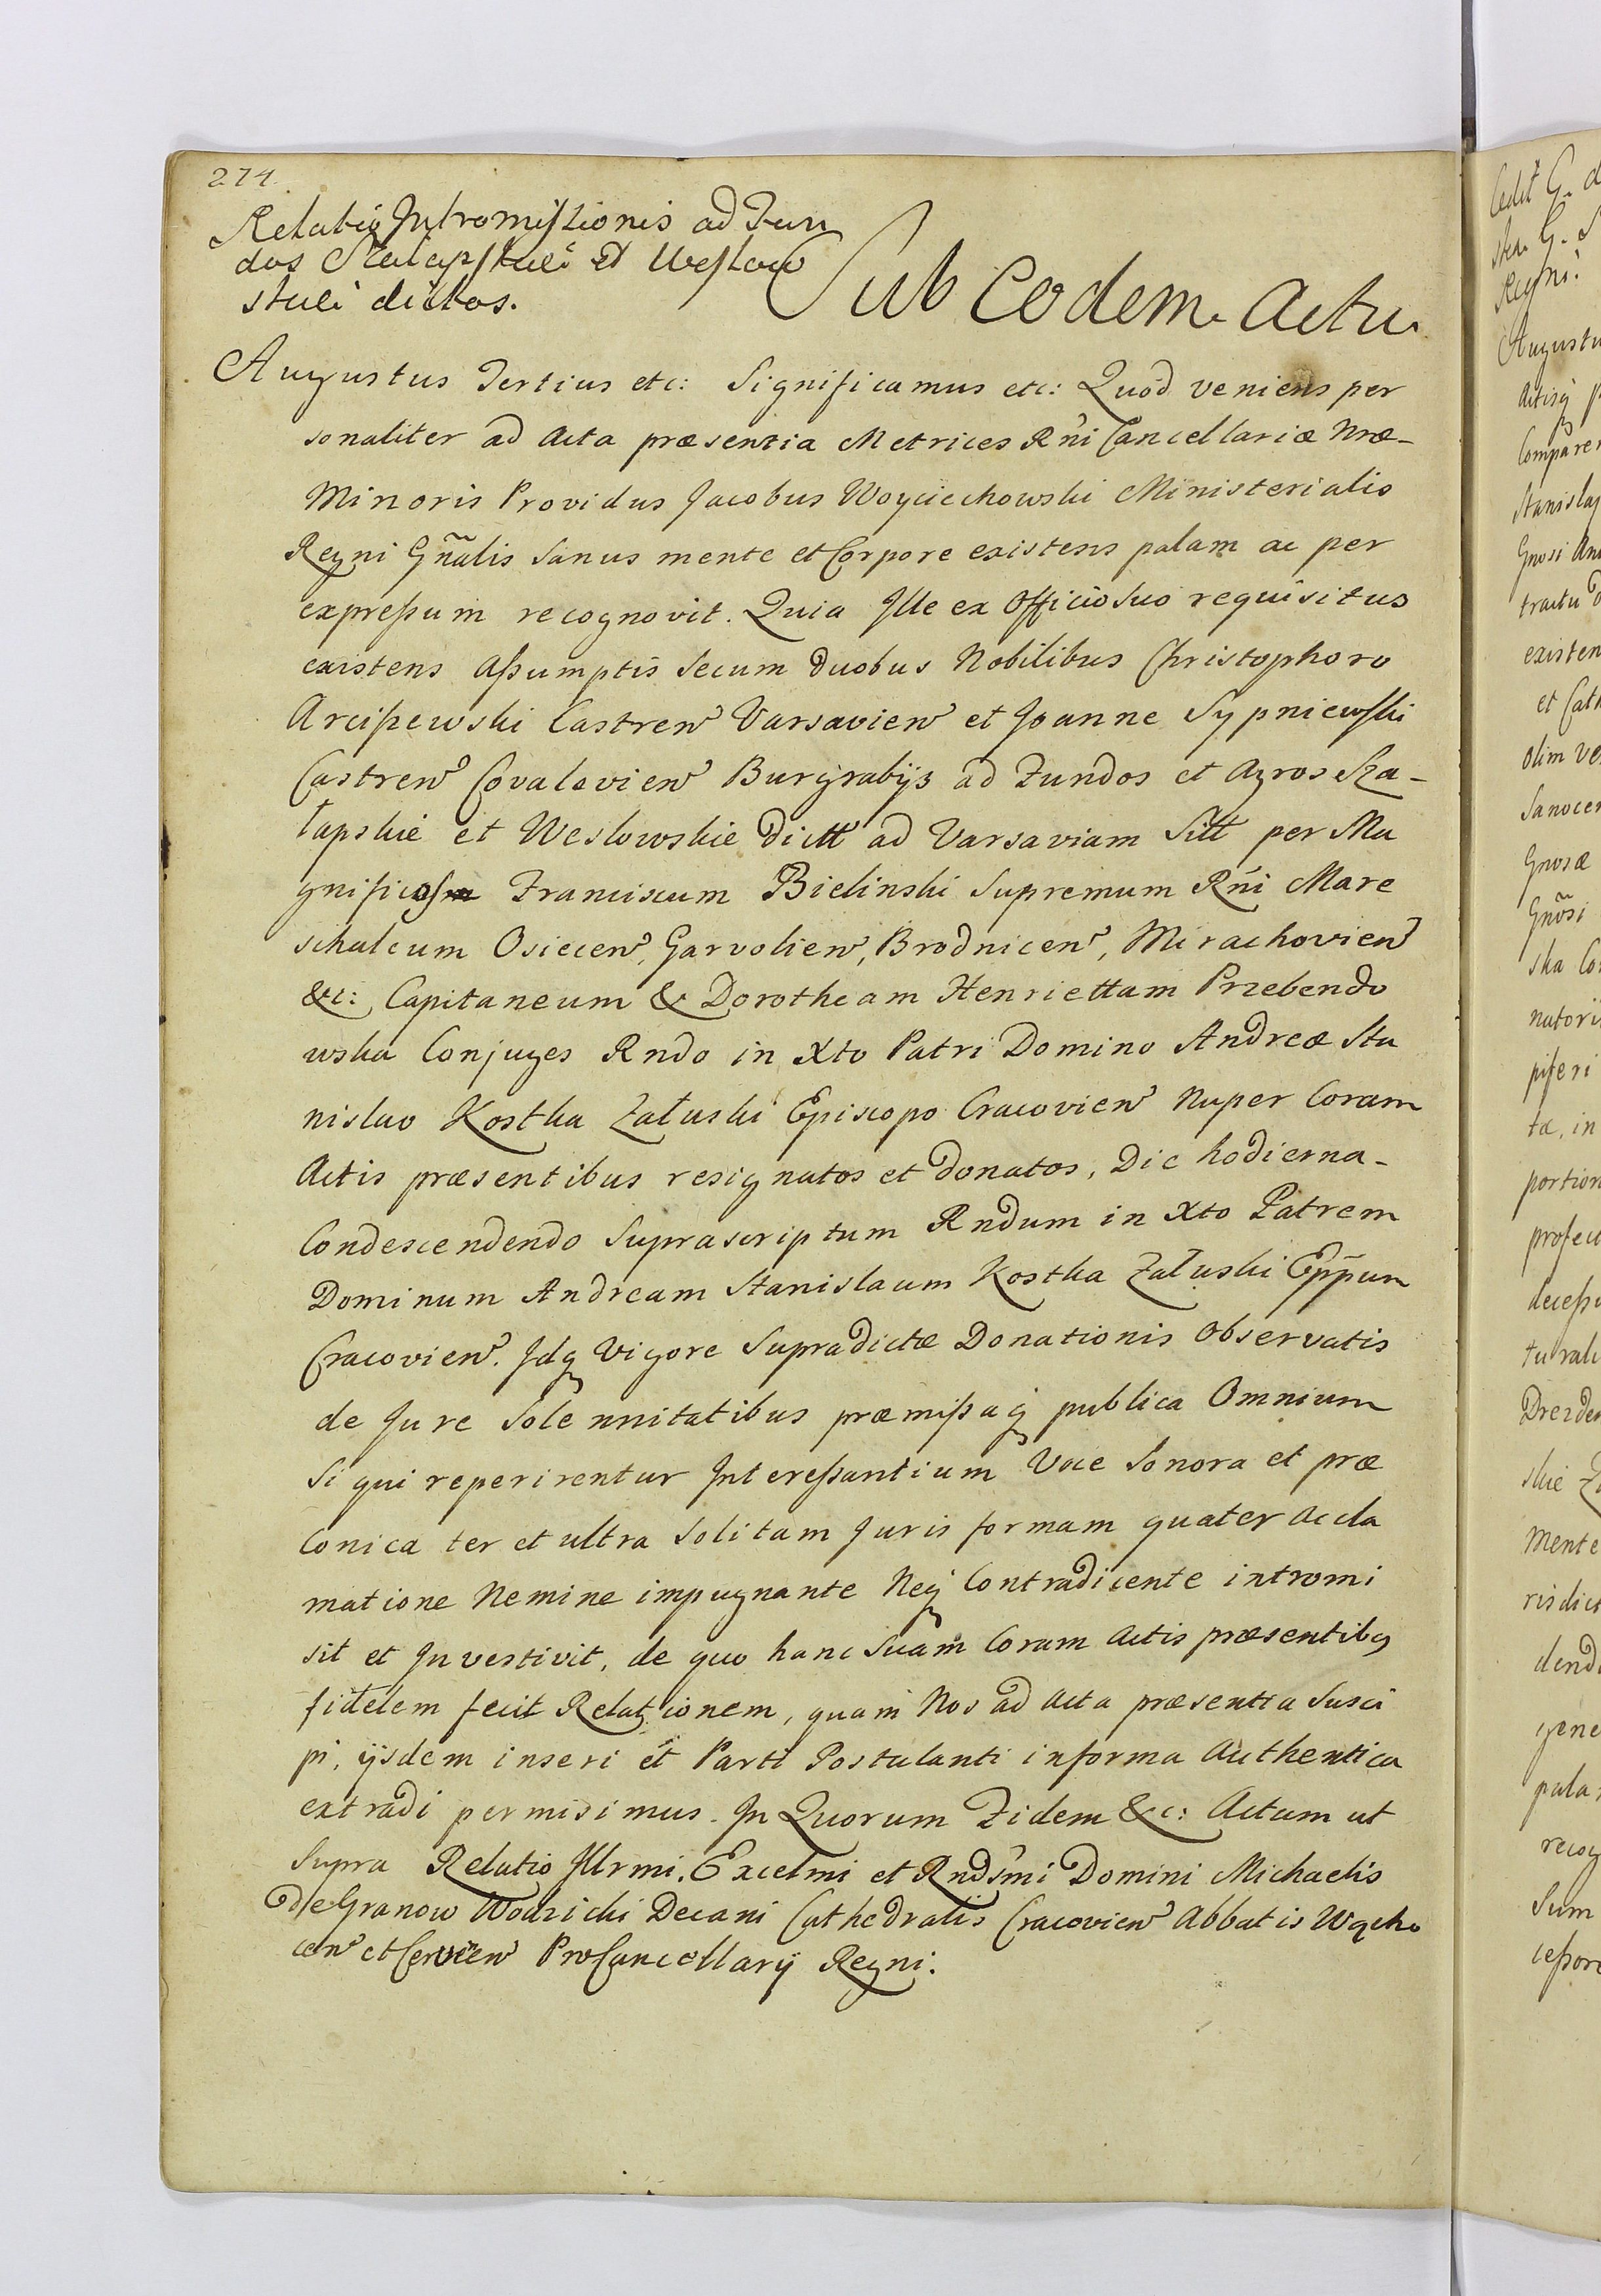 274.
Relatio Intromissionis ad Fun
dos Szałapskie et Wesłow
skie dictos.
Sub Eodem Actu
Augustus Tertius etc: Significamus etc: Quod veniens per
sonaliter ad Acta præsentia Metrices Rñi Cancellariæ Nræ
Minoris Providus Jacobus Woyciechowski Ministerialis
Regni Gñalis Sanus mente et Corpore existens palam ac per
expressum recognovit. Quia Ille ex Officio Suo requisitus
existens Assumptis Secum Duobus Nobilibus Christophoro
Arcissewski Castren Varsavien et Joanne Sypniewski
Castren Covalevien Burgrabijs ad Fundos et Agros Sza-
łapskie et Weslowskie Dictt ad Varsaviam Sitt per Ma
gnificos Franciscum Bielinski Supremum Rñi Mare
schalcum Osiecen, Garvolien, Brodnicen, Mirachovien
&c: Capitaneum & Dorotheam Henriettam Przebendo
wska Conjuges Rndo in Xto Patri Domino Andreæ Sta
nislao Kostka Załuski Episcopo Cracovien Nuper Coram
Actis præsentibus resignatos et Donatos, Die hodierna
Condescendendo Suprascriptum Rndum in Xto Patrem
Dominum Andream Stanislaum Kostka Załuski Epp̃um
Cracovien. Idq Vigore Supradictæ Donationis Observatis
de Jure Solennitatibus præmissaq publica Omnium
Si qui reperirentur Interessantium Voce Sonora et præ
Conica ter et ultra Solitam Juris formam quater Accla
matione Nemine impugnante Neq Contradicente intromi
sit et Investivit, de quo hanc Suam Coram Actis præsentibq
fidelem fecit Relationem, quam Nos ad Acta præsentia Susci
pi, ijsdem inseri et Parti Postulanti in forma Authentica
extradi permisimus. In Quorum Fidem &c: Actum ut
Supra Relatio Illrmi. Excelmi et Rndsmi Domini Michaelis
De Granow Wodzicki Decani Cathedralis Cracovien Abbatis Wącho
cen et Cervien ProCancellarij Regni.
Augustu
Compare
Stanisla
existen
et Cath
olim ve
Sanocen
Gnosæ
Gnosi
natori
piferi
tæ, in
portion
decessu
Mente
gene
recog
Sum
cessor